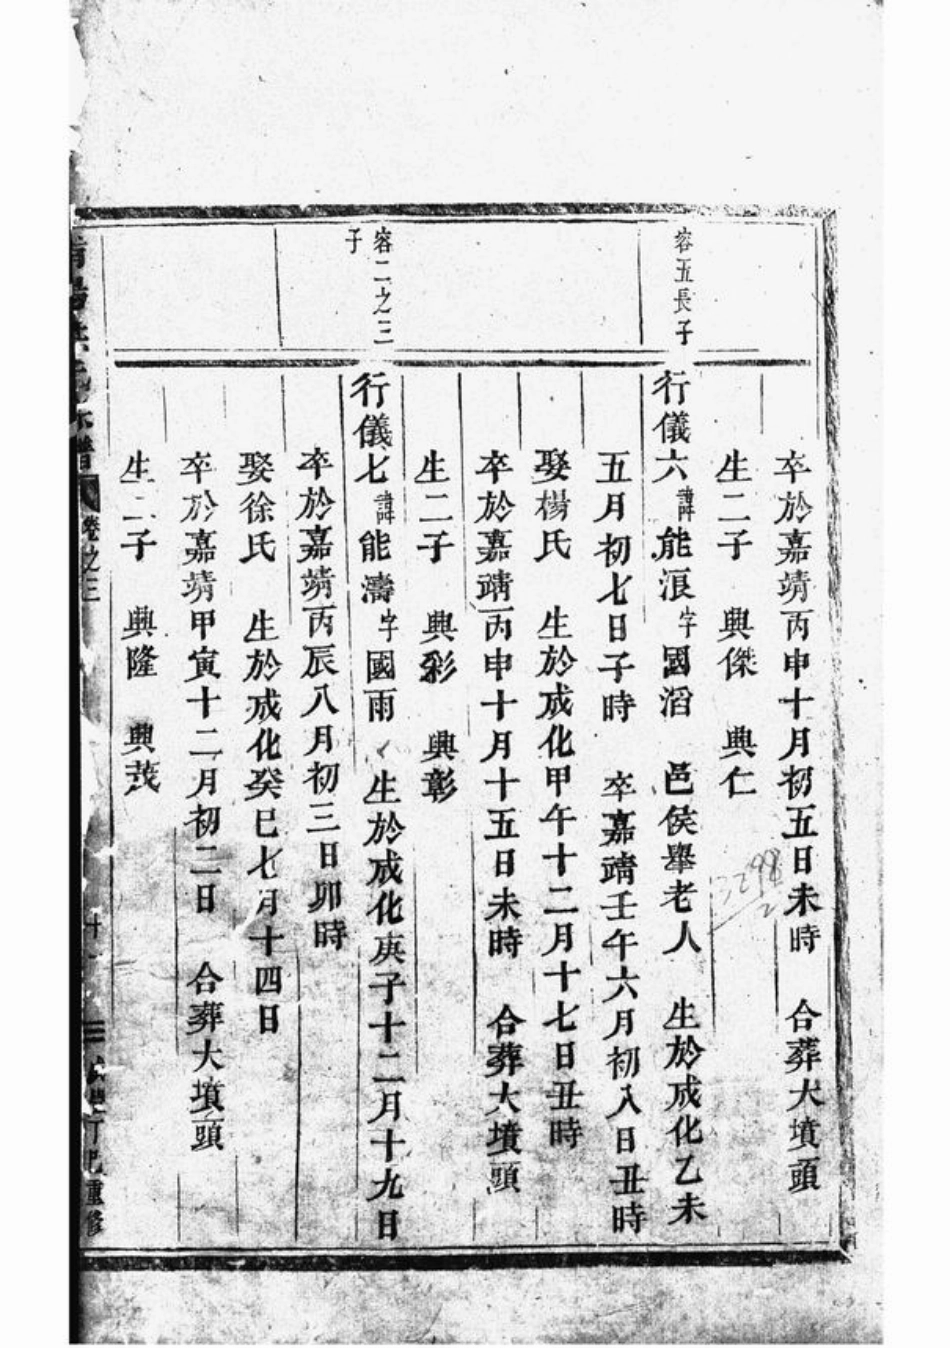 卒於嘉靖丙申十月初五日未時 合葬大墳頭
生二子 興傑 興仁
容五長子
行儀六諱能浪字國滔 邑侯舉老人 生於成化乙未
五月初七日子時 卒嘉靖壬午六月初八日丑時
娶楊氏 生於成化甲午十二月十七日丑時
卒於嘉靖丙申十月十五日未時 合葬大墳頭
生二子 興彩 興彰
容二之三
子
行儀七諱能濤字國雨 生於成化庚子十二月十九日
卒於嘉靖丙辰八月初三日卯時
娶徐氏 生於成化癸巳七月十四日
卒於嘉靖甲寅十二月初二日 合葬大墳頭
生二子 興隆 興茂
卷之三
重修